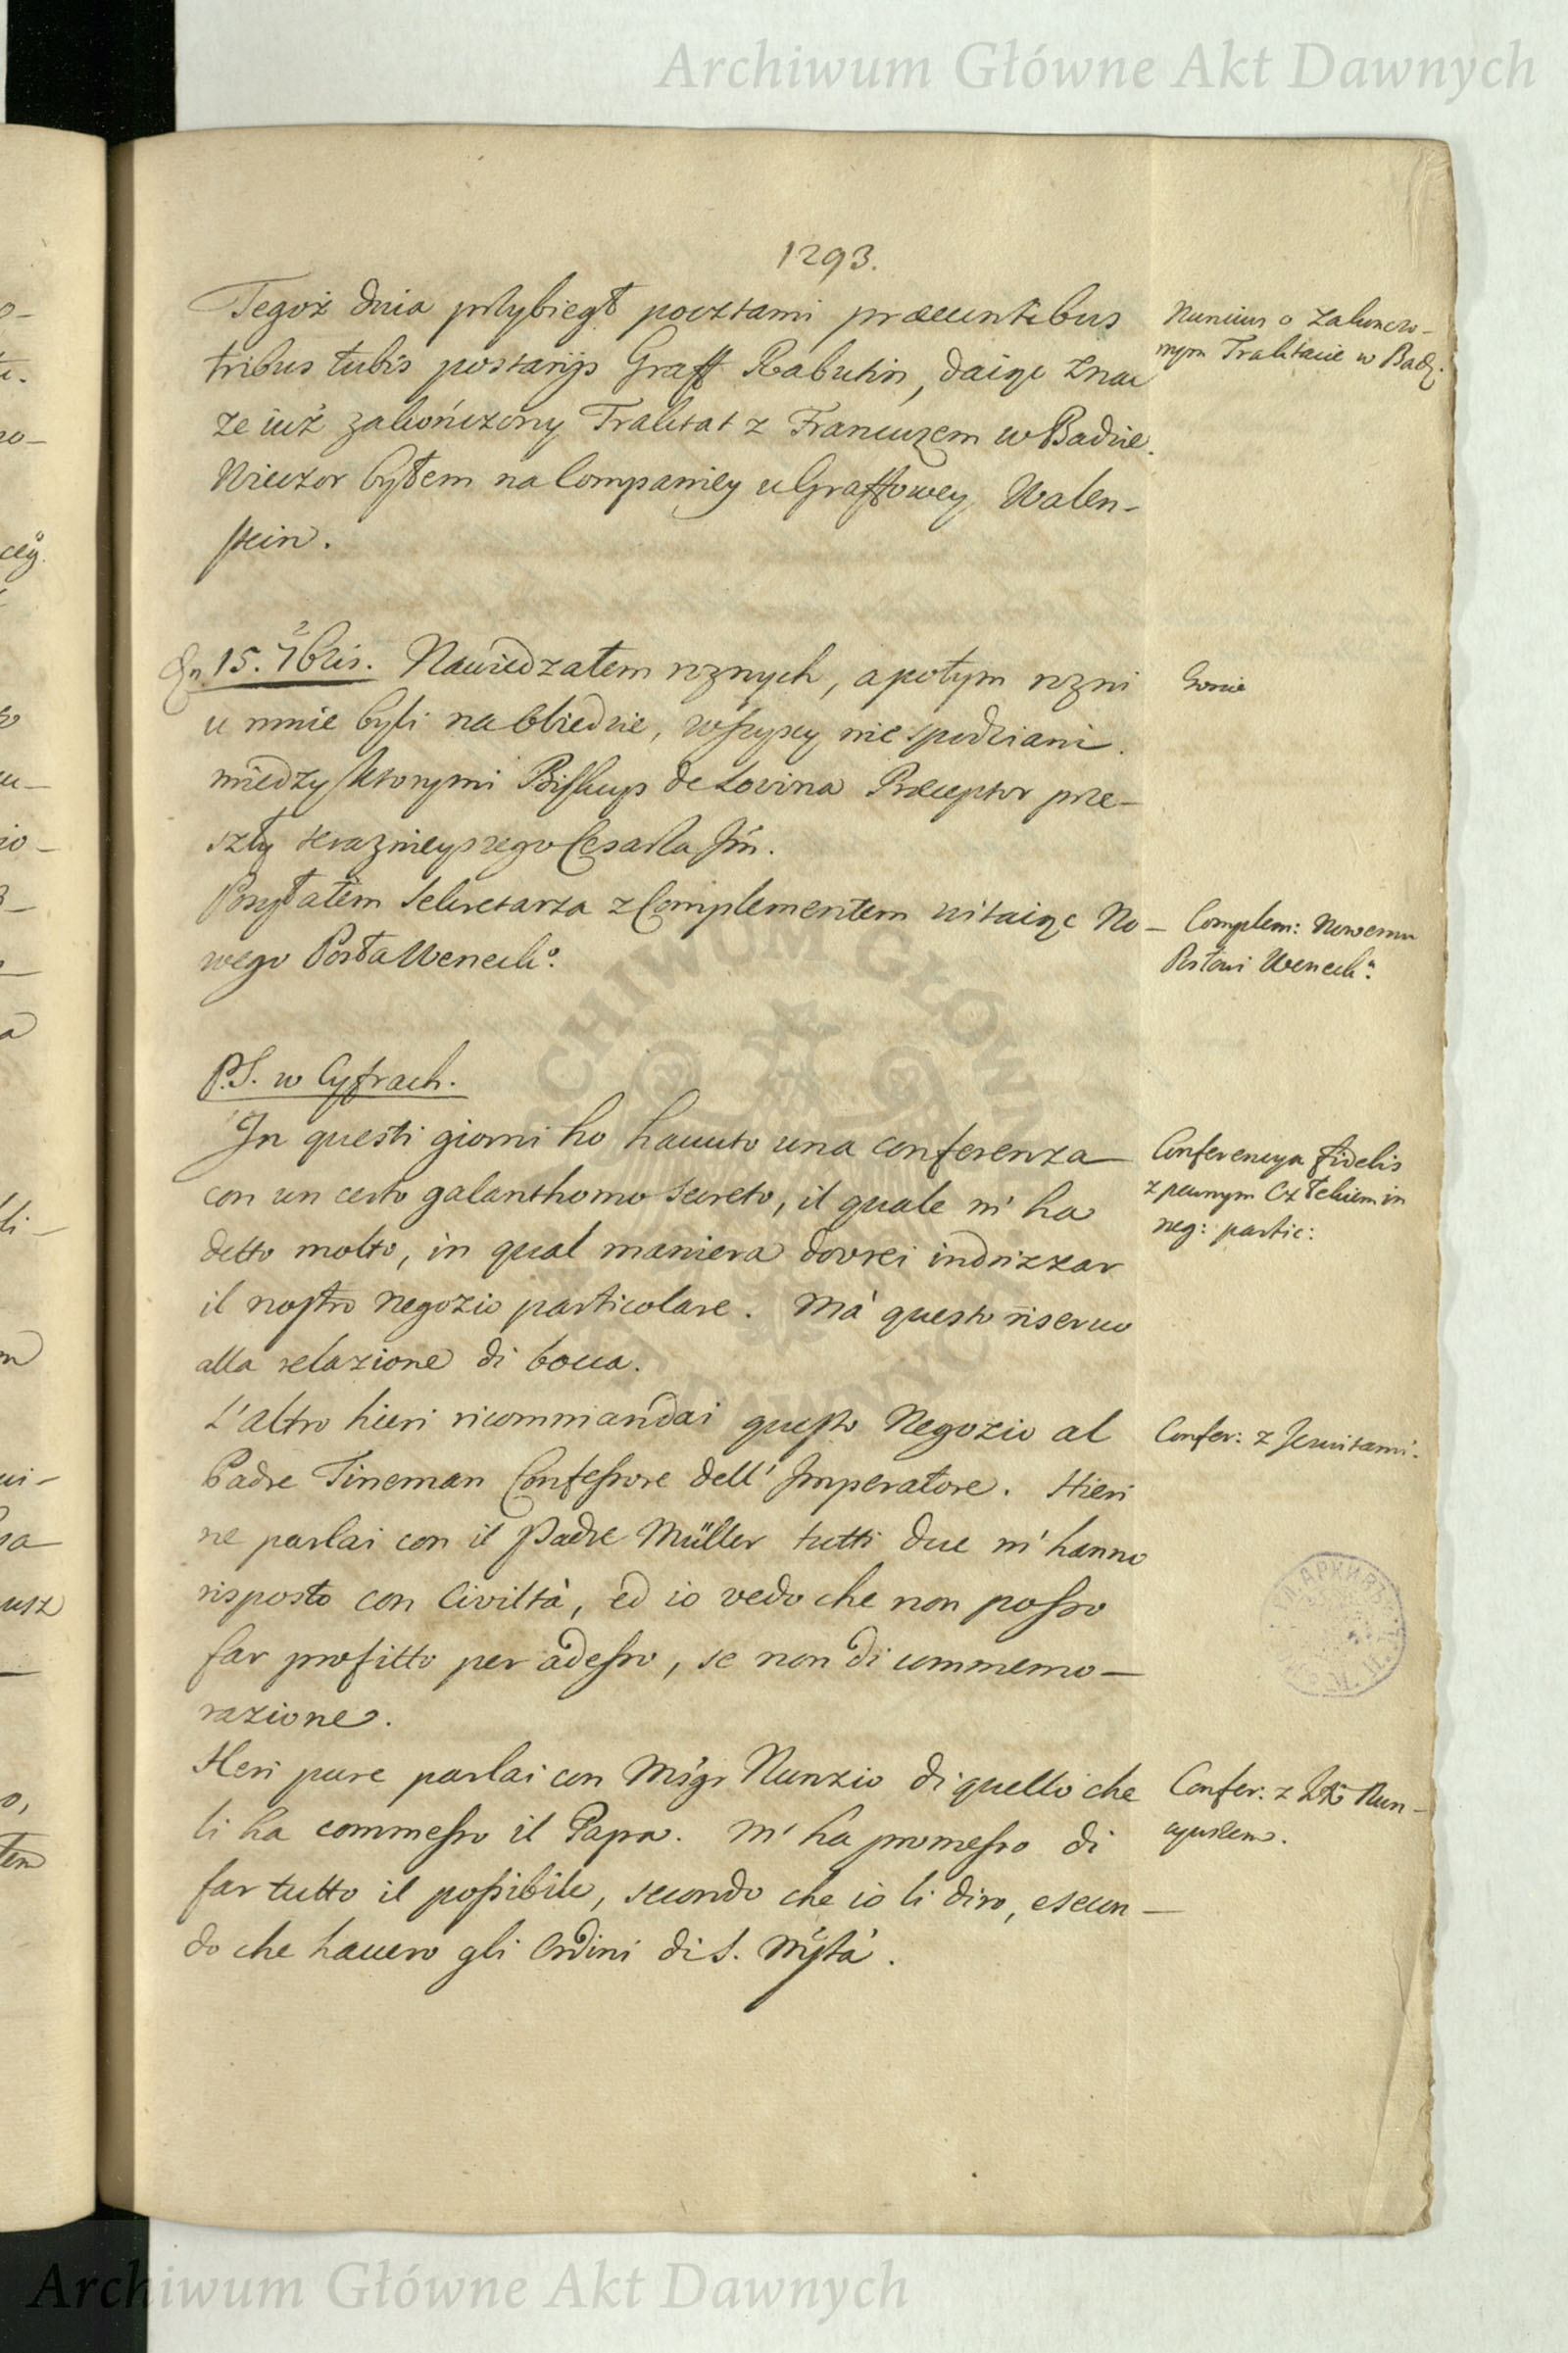 Archiwum Główne Akt Dawnych
1293.
Tegoż dnia przybiegł pocztami praeeuntibus
tribus tubis postarijs Graff Rabutin, daiąc znac
że iuż zakończony Traktat z Francuzem w Badzie.
Wieczor byłem na Compamiey u Graffowey Walen-
stein.
Nuncius o zakonczo-
nym Traktacie w Badz.
Dn. 15. 7bris. Nawiedzałem roznych, a potym rozni
u mnie byli na Obiedzie, wszyscy nie spodziani.
miedzy ktorymi Biskup de Lovina Praeceptor prze-
szły teraznieyszego Cesarza Jm̃.
Posyłałem Sekretarza z Complementem witaiąc No-
wego Posła Weneckº.
Goscie
Complem: Nowemu
Posłowi Weneckº:
P.S. w Cyfrach.
In questi giorni ho hauuto una conferenza
con un certo galanthomo secreto, il quale m' ha
detto molto, in qual maniera dovrei indrizzar
il nostro negozio particolare. Mà questo riseruo
alla relazione di bocca.
Conferencya fidelis
z pewnym Człekiem in
neg: partic:
L'altro hieri ricommandai questo Negozio al
Padre Tineman Confessore dell' Imperatore. Hieri
ne parlai con il Padre Müller tutti due m' hanno
risposto con Civiltà, ed io vedo che non posso
far profitto per adesso, se non di commemo-
razione.
Confer: z Jezuitami.
Heri pure parlai con Msgr Nunzio di quello che
li ha commesso il Papa. M' ha promesso di
far tutto il possibile, secondo che io li diro, e secon-
do che hauero gli Ordini di S. Mstà.
Confer: z Xº Nun-
cyuszem.
Archiwum Główne Akt Dawnych